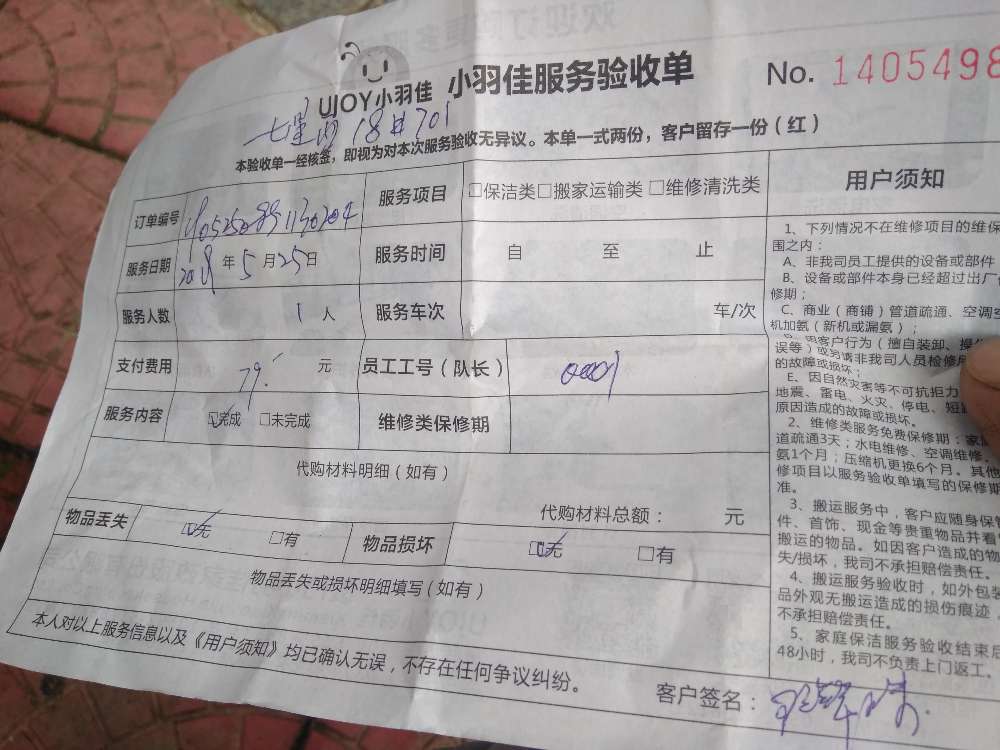 UJOY小羽佳 小羽佳服务验收单 No. 1405498
18 701
本验收单一经核签，即视为对本次服务验收无异议。本单一式两份，客户留存一份（红）
订单编号 服务项目 □保洁类□搬家运输类 □维修清洗类
服务日期 2018年5月25日 服务时间 自 至 止
服务人数 1 人 服务车次 车/次
支付费用 79. 元 员工工号（队长） 0001
服务内容 ☑完成 □未完成 维修类保修期
代购材料明细（如有）
代购材料总额： 元
物品丢失 ☑无 □有 物品损坏 ☑无 □有
物品丢失或损坏明细填写（如有）
本人对以上服务信息以及《用户须知》均已确认无误，不存在任何争议纠纷。
客户签名：
用户须知
1、下列情况不在维修项目的维保
围之内：
A、非我司员工提供的设备或部件
B、设备或部件本身已经超过出厂
修期；
C、商业（商铺）管道疏通、空调空
机加氨（新机或漏氨）；
用客户行为（擅自装卸、操作
误等）或另请非我司人员检修
的故障或损坏；
E、因自然灾害等不可抗拒力
地震、雷电、火灾、停电、短
原因造成的故障或损坏。
2、维修类服务免费保修期：家庭
道疏通3天；水电维修、空调维修、
氨1个月；压缩机更换6个月。其他
修项目以服务验收单填写的保修期
准。
3、搬运服务中，客户应随身保
件、首饰、现金等贵重物品并看
搬运的物品。如因客户造成的物
失/损坏，我司不承担赔偿责任。
4、搬运服务验收时，如外包装
品外观无搬运造成的损伤痕迹，
不承担赔偿责任。
5、家庭保洁服务验收结束后
48小时，我司不负责上门返工。